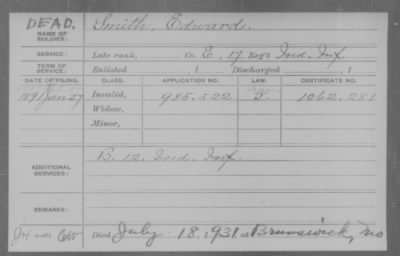 DEAD.
NAME OF SOLDIER:
Smith, Edward.
SERVICE:
Late rank, Co. E, 17 Reg't Ind. Inf.
TERM OF SERVICE:
Enlisted , 1 Discharged , 1
DATE OF FILING. CLASS. APPLICATION NO. LAW. CERTIFICATE NO.
1891 Jan 27 Invalid, 985.522 2 1062.281
Widow,
Minor,
ADDITIONAL SERVICES:
B. 12. Ind. Inf.
REMARKS:
Died July 18, 1931 at Brunswick, Mo